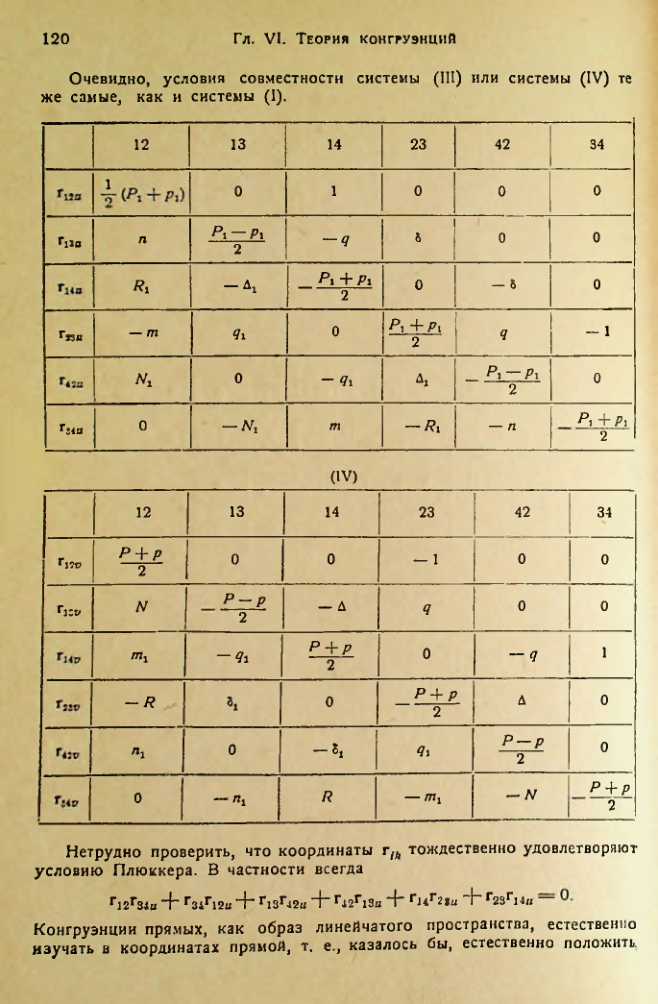 120 Гл. VI. Теория конгруэнций
Очевидно, условия совместности системы (III) или системы (IV) те
же самые, как и системы (I).
12 13 14 23 42 34
r₁₂ᵤ ½ (P₁ + p₁) 0 1 0 0 0
r₁₃ᵤ n (P₁ — p₁)/2 — q δ 0 0
r₁₄ᵤ R₁ — Δ₁ — (P₁ + p₁)/2 0 — δ 0
r₂₃ᵤ — m q₁ 0 (P₁ + p₁)/2 q — 1
r₄₂ᵤ N₁ 0 — q₁ Δ₁ — (P₁ — p₁)/2 0
r₃₄ᵤ 0 — N₁ m — R₁ — n — (P₁ + p₁)/2
(IV)
12 13 14 23 42 34
r₁₂ᵥ (P + p)/2 0 0 — 1 0 0
r₁₃ᵥ N — (P — p)/2 — Δ q 0 0
r₁₄ᵥ m₁ — q₁ (P + p)/2 0 — q 1
r₂₃ᵥ — R δ₁ 0 — (P + p)/2 Δ 0
r₄₂ᵥ n₁ 0 — δ₁ q₁ (P — p)/2 0
r₃₄ᵥ 0 — n₁ R — m₁ — N — (P + p)/2
Нетрудно проверить, что координаты rᵢₖ тождественно удовлетворяют
условию Плюккера. В частности всегда
r₁₂r₃₄ᵤ + r₃₄r₁₂ᵤ + r₁₃r₄₂ᵤ + r₄₂r₁₃ᵤ + r₁₄r₂₃ᵤ + r₂₃r₁₄ᵤ = 0.
Конгруэнции прямых, как образ линейчатого пространства, естественно
изучать в координатах прямой, т. е., казалось бы, естественно положить